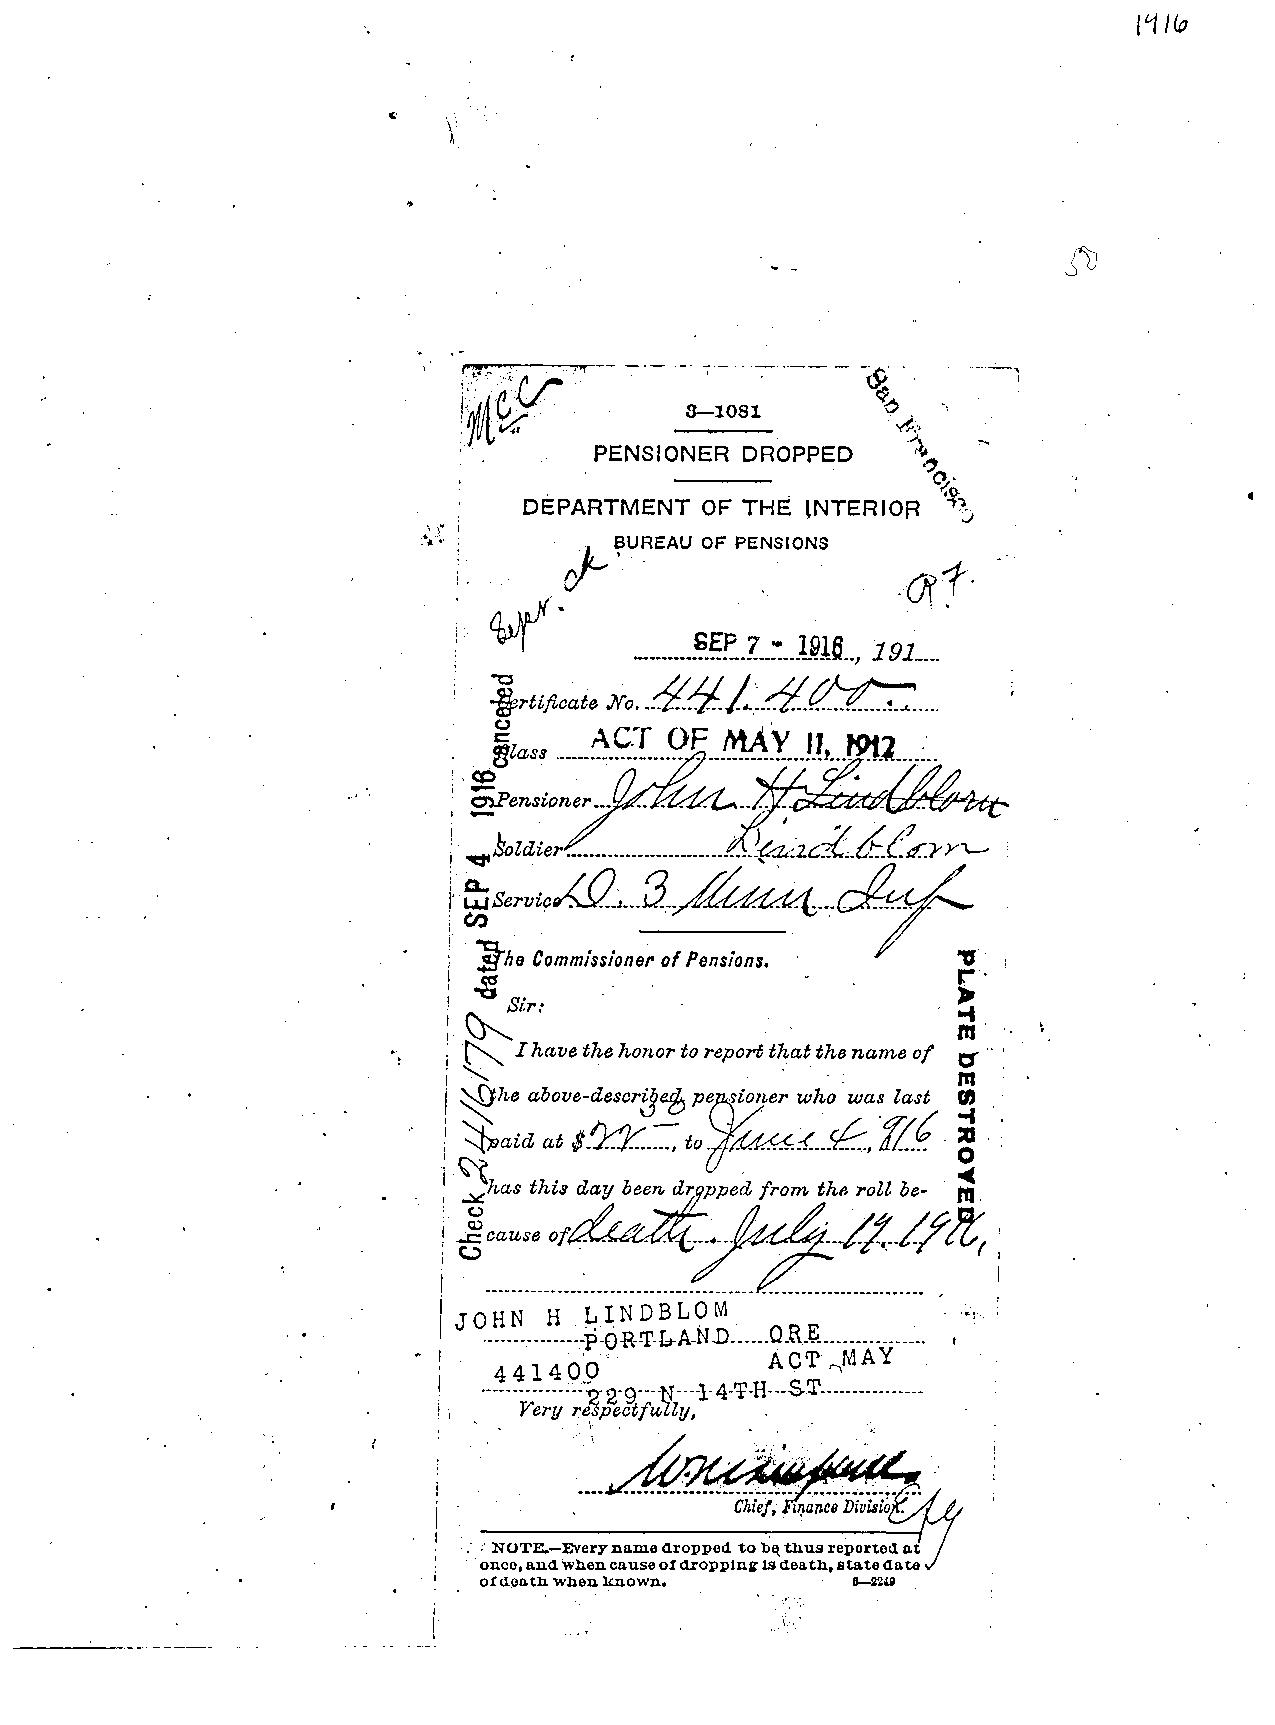 1916
50
McC
San Francisco
3—1081
PENSIONER DROPPED
DEPARTMENT OF THE INTERIOR
BUREAU OF PENSIONS
ck
SEP 7 - 1916, 191
Certificate No. 441.400.
Class ACT OF MAY 11, 1912
Pensioner John H Lindblom
Soldier Lindblom
Service D. 3 Minn Inf
The Commissioner of Pensions.
Sir:
I have the honor to report that the name of
the above-described pensioner who was last
paid at $22—, to June 4, 916
has this day been dropped from the roll be-
cause of death. July 19. 1916,
JOHN H LINDBLOM
PORTLAND ORE
441400 ACT MAY
229 N 14TH ST
Very respectfully,
Chief, Finance Division.
NOTE.—Every name dropped to be thus reported at
once, and when cause of dropping is death, state date
of death when known.
6—2249
Check 2416179 dated SEP 4 1916 canceled
PLATE DESTROYED